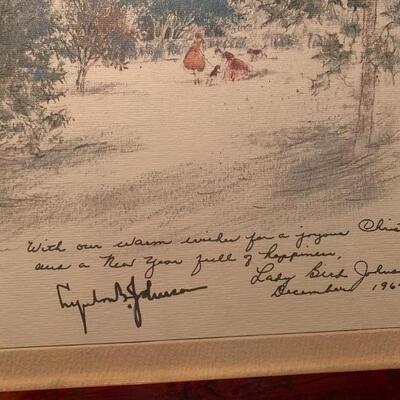 With our warm wishes for a joyous Christ
and a New Year full of happiness,
Lady Bird Johns
Lyndon B. Johnson
December 196